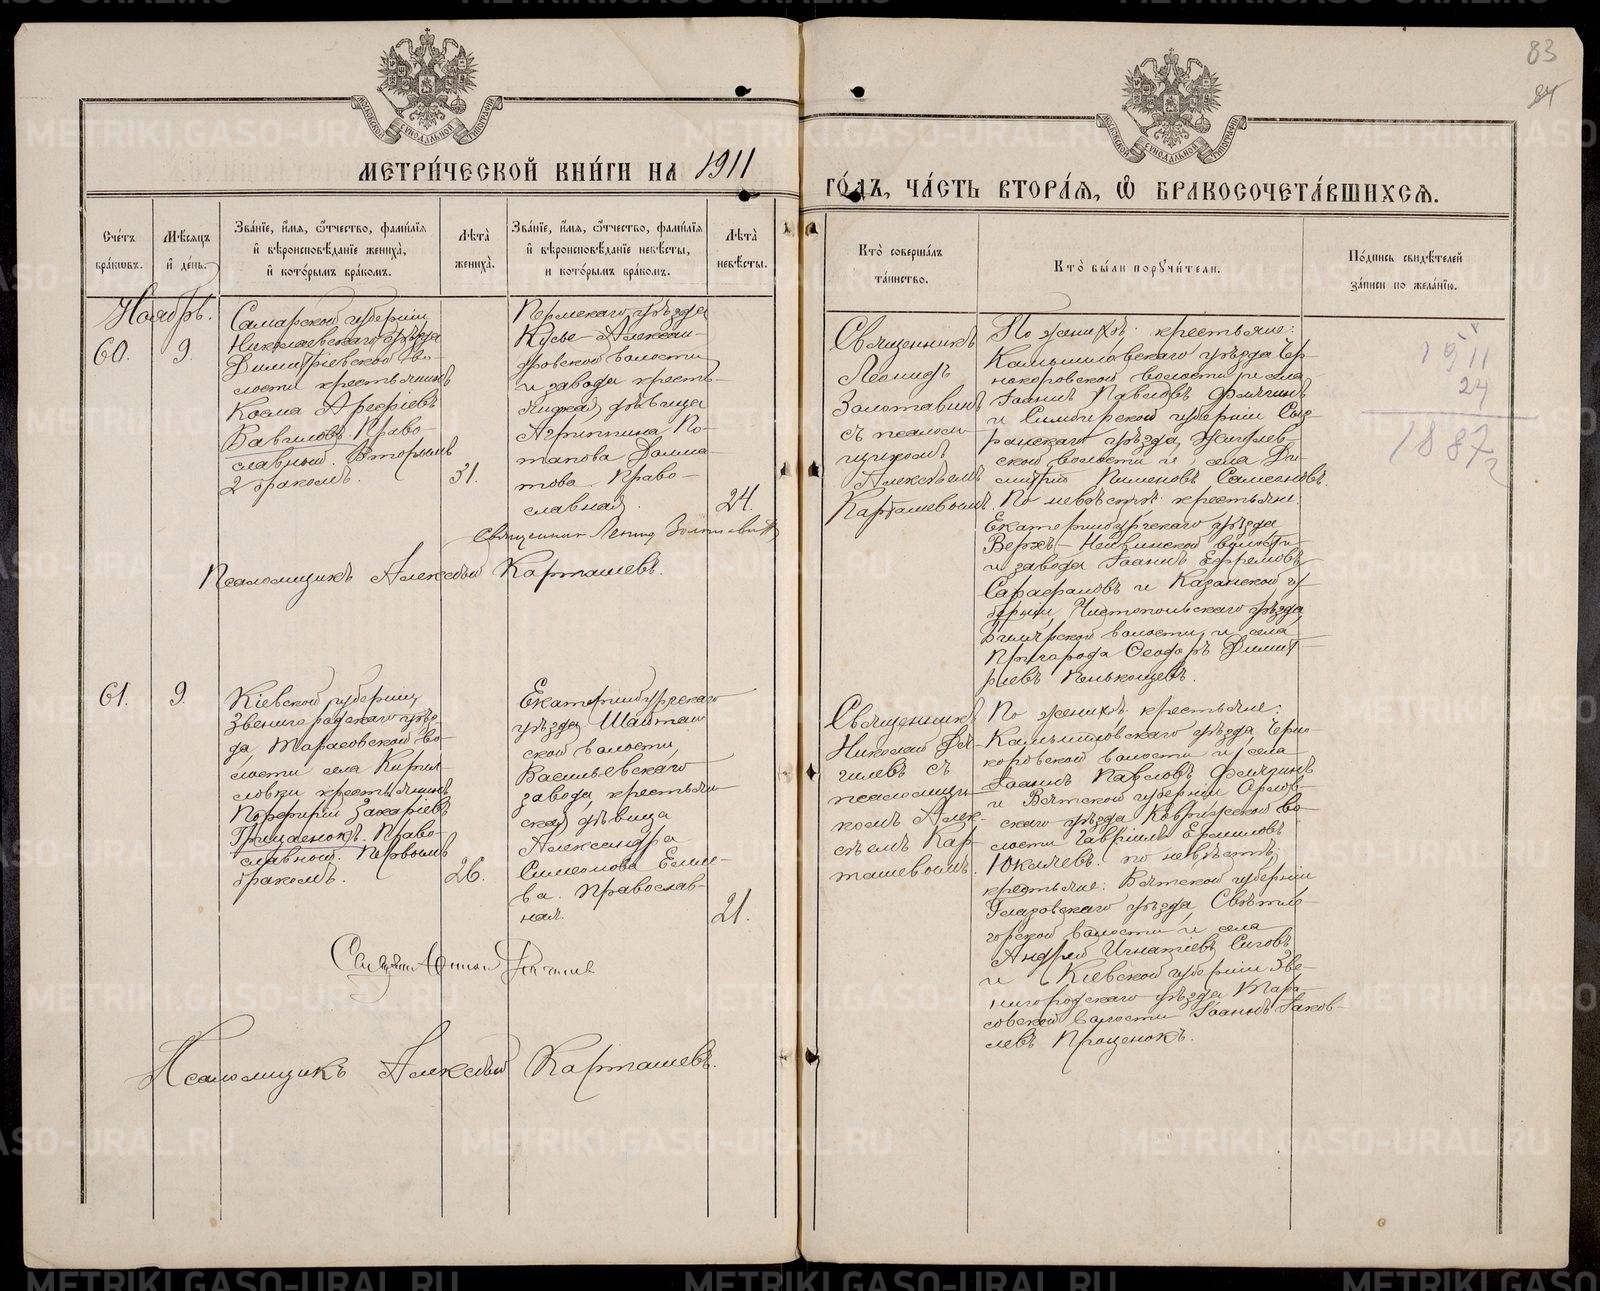 83
84
МЕТРИ́ЧЕСКОЙ КНИ́ГИ НА 1911
ГО́ДЪ, ЧА́СТЬ ВТОРА́Я, Ѽ БРАКОСОЧЕТА́ВШИХСЯ.
Сче́тъ бра́кѡвъ.
Мѣ́сяцъ и҆ де́нь.
Зва́нїе, и҆́мя, ѻ҆́тчество, фами́лїя и҆ вѣроисповѣ́данїе жениха́, и҆ кото́рымъ бра́комъ.
Лѣта̀ жениха̀.
Зва́нїе, и҆́мя, ѻ҆́тчество, фами́лїя и҆ вѣроисповѣ́данїе невѣ́сты, и кото́рымъ бра́комъ.
Лѣта̀ невѣ́сты.
Кто̀ соверша́лъ та́инство.
Кто̀ бы́ли поручи́тели.
По́дпись свидѣ́телей за́писи по жела́нїю.
Ноябрь.
60.
9.
Самарской губернiи
Николаевскаго уѣзда
Димитрiевской во-
лости крестьянинъ
Косма Арефiевъ
Вавиловъ Право-
славный. Вторымъ
2 бракомъ.
31.
Пермскаго уѣзда
Кусье-Алексан-
дровской волости
и завода кресть-
янская дѣвица
Агриппина По-
тапова
Право-
славная.
24.
Священникъ
Леонидъ
Золотавинъ
съ псалом-
щикомъ
Алексѣемъ
Карташевымъ.
По женихѣ: крестьяне:
Камышловскаго уѣзда Чер-
нокоровской волости и села
Iоаннъ Павловъ
и Симбирской губернiи Сыз-
ранскаго уѣзда,
ской волости и села
Пименовъ Самсоновъ.
По невѣстѣ крестьяне:
Екатеринбургскаго уѣзда
Верхъ-Нейвинской волости
и завода Iоаннъ Ефремовъ
Сарафановъ и Казанской гу-
бернiи, Чистопольскаго уѣзда,
волости и села
Пригорода Ѳеодоръ Димит-
рiевъ Пеньковцевъ.
1911
24
1887 г
Священникъ Леонидъ Золотавинъ
Псаломщикъ Алексѣй Карташевъ.
61.
9.
Кiевской губернiи,
Звенигородскаго уѣз-
да, Тарасовской во-
лости села Кирил-
ловки крестьянинъ
Порфирiй Захарiевъ
Грицаенокъ. Право-
славный. Первымъ
бракомъ.
26.
Екатеринбургскаго
уѣзда, Шайтан-
ской волости,
Васильевскаго
завода, крестьян-
ская дѣвица
Александра
Симеонова Ели-
ва. Православ-
ная.
21.
Священникъ
Николай Дя-
гилевъ съ
псаломщи-
комъ Алек-
сѣемъ Кар-
ташевымъ.
По женихѣ: крестьяне:
Камышловскаго уѣзда, Черно-
коровской волости и села
Iоаннъ Павловъ
и Вятской губернiи Орлов-
скаго уѣзда, во-
лости Гаврiилъ Ермиловъ
Юкляевъ. по невѣстѣ:
крестьяне: Вятской губернiи
Глазовскаго уѣзда, Святпо-
горской волости и села
Андрей Игнатiевъ Сиговъ
и Кiевской губернiи Зве-
нигородскаго уѣзда Тара-
совской волости Iоаннъ Iаков-
левъ Проценокъ.
Псаломщикъ Алексѣй Карташевъ.
METRIKI.GASO-URAL.RU